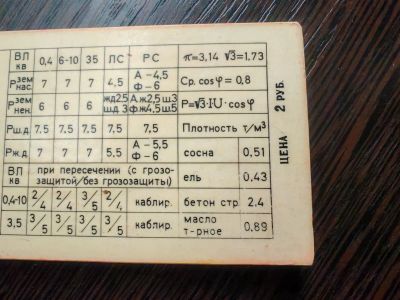 ВЛ кВ 0,4 6-10 35 ЛС РС π=3,14 √3=1,73
Рзем нас. 7 7 7 4,5 А-4,5 Ф-6 Ср. cosφ = 0,8
Рзем нен. 6 6 6 жд2,5 шд 3 Аж2,5ш3 Фж4,5ш5 Р=√3·IU·cosφ
Рш.д. 7,5 7,5 7,5 7,5 7,5 Плотность т/м³
Рж.д. 7 7 7 5,5 А-5,5 Ф-6 сосна 0,51
ВЛ кВ при пересечении (с грозозащитой/без грозозащиты) ель 0,43
0,4-10 2/4 2/4 3/5 2/4 каблир. бетон стр. 2.4
3,5 3/5 3/5 3/5 3/5 каблир. масло т-рное 0,89
ЦЕНА 2 РУБ.